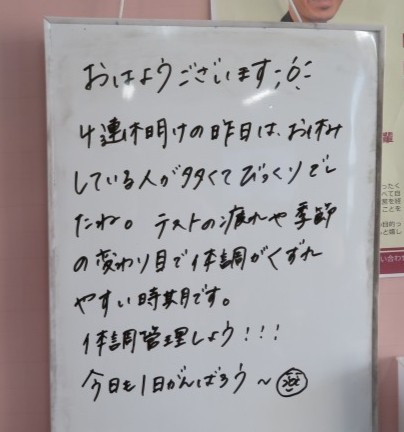 おはようございます
4連休明けの昨日は、お休み
している人が多くてびっくりでし
たね。テストの疲れや季節
の変わり目で体調がくずれ
やすい時期です。
体調管理しよう!!!
今日も1日がんばろう〜
輩